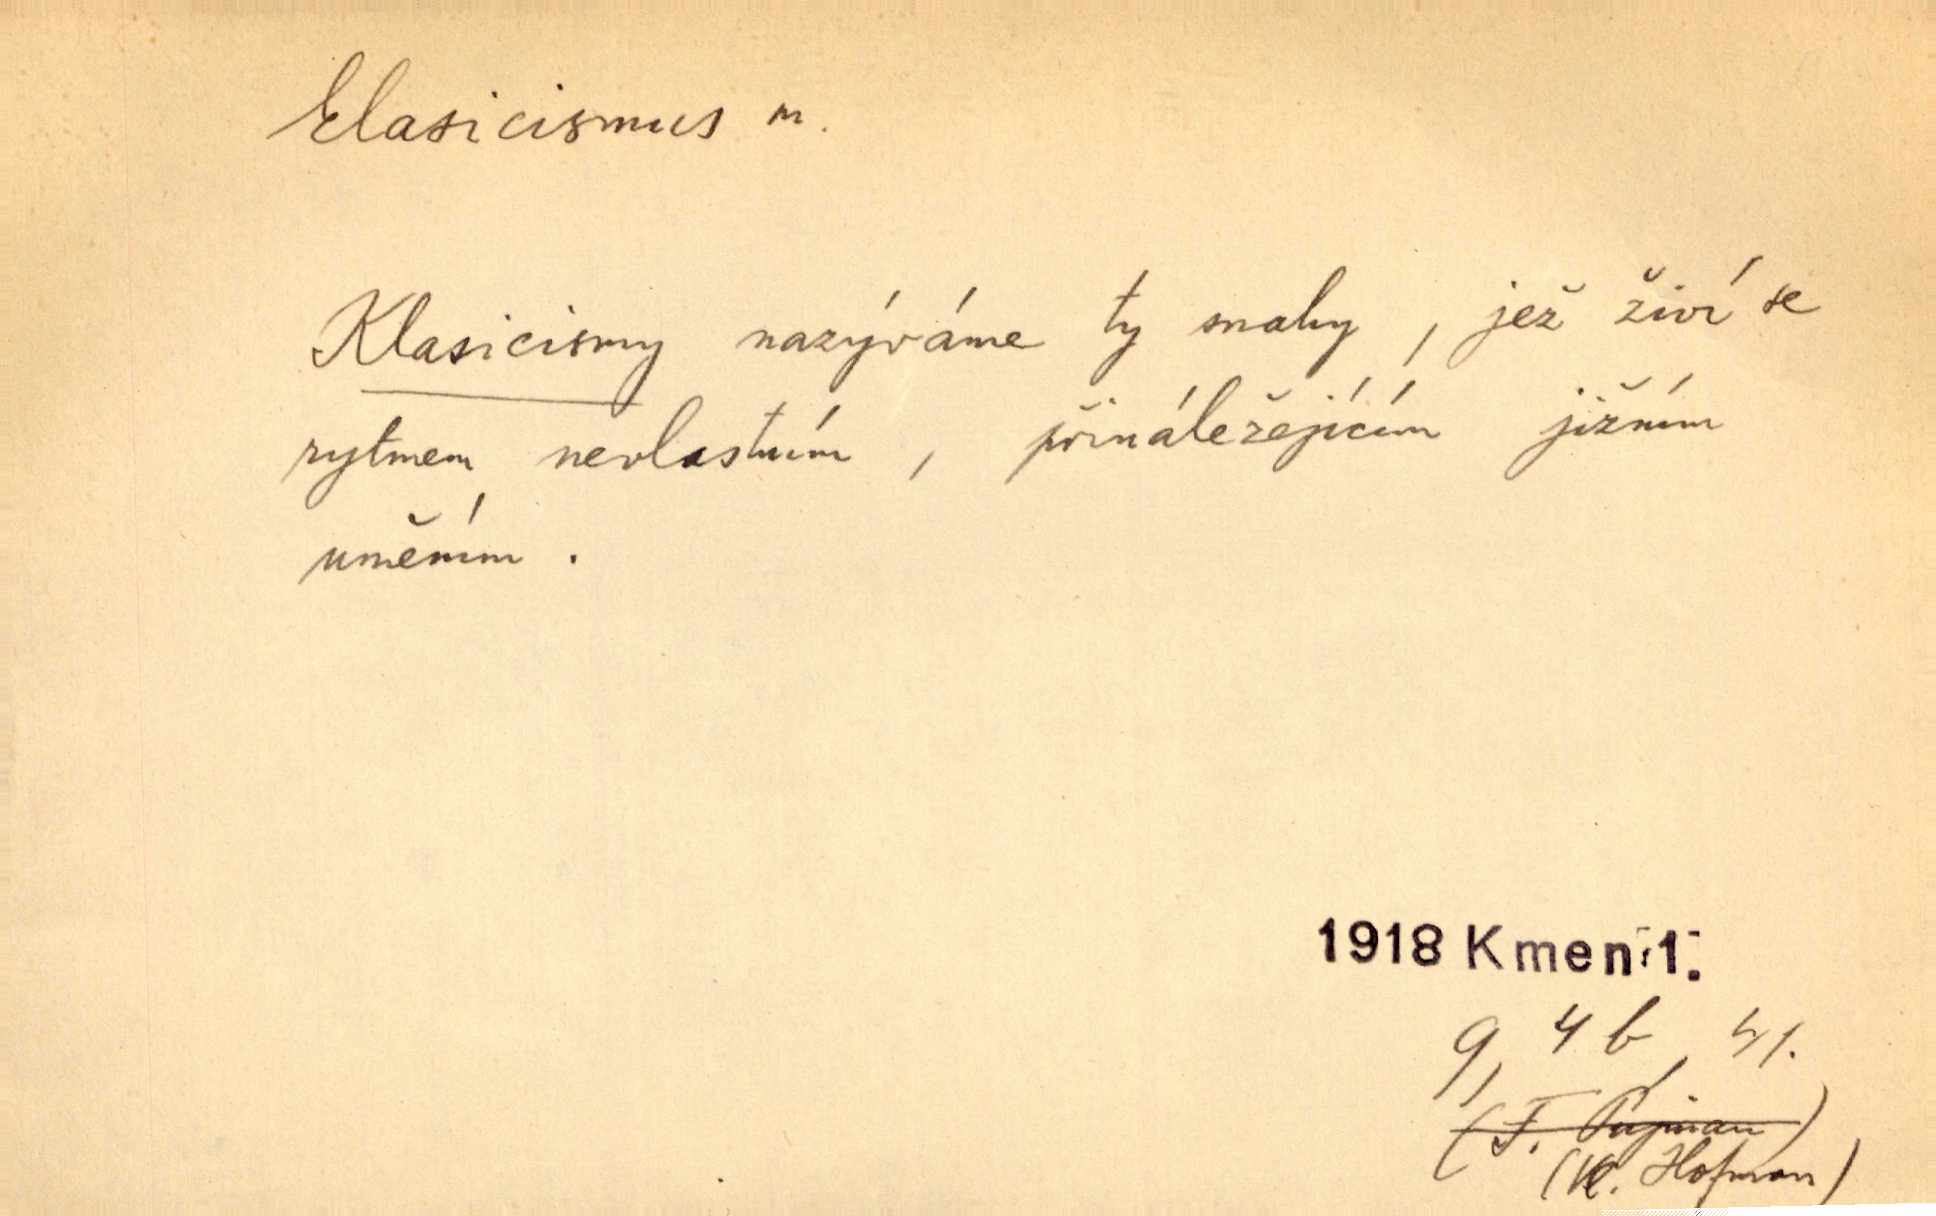 klasicismus m.
Klasicismy nazýváme ty snahy, jež živí se
rytmem nevlastním, přináležejícím jižním
uměním.
1918 Kmen 1.
9, 4 b
(F. Pujman)
(V. Hofman)